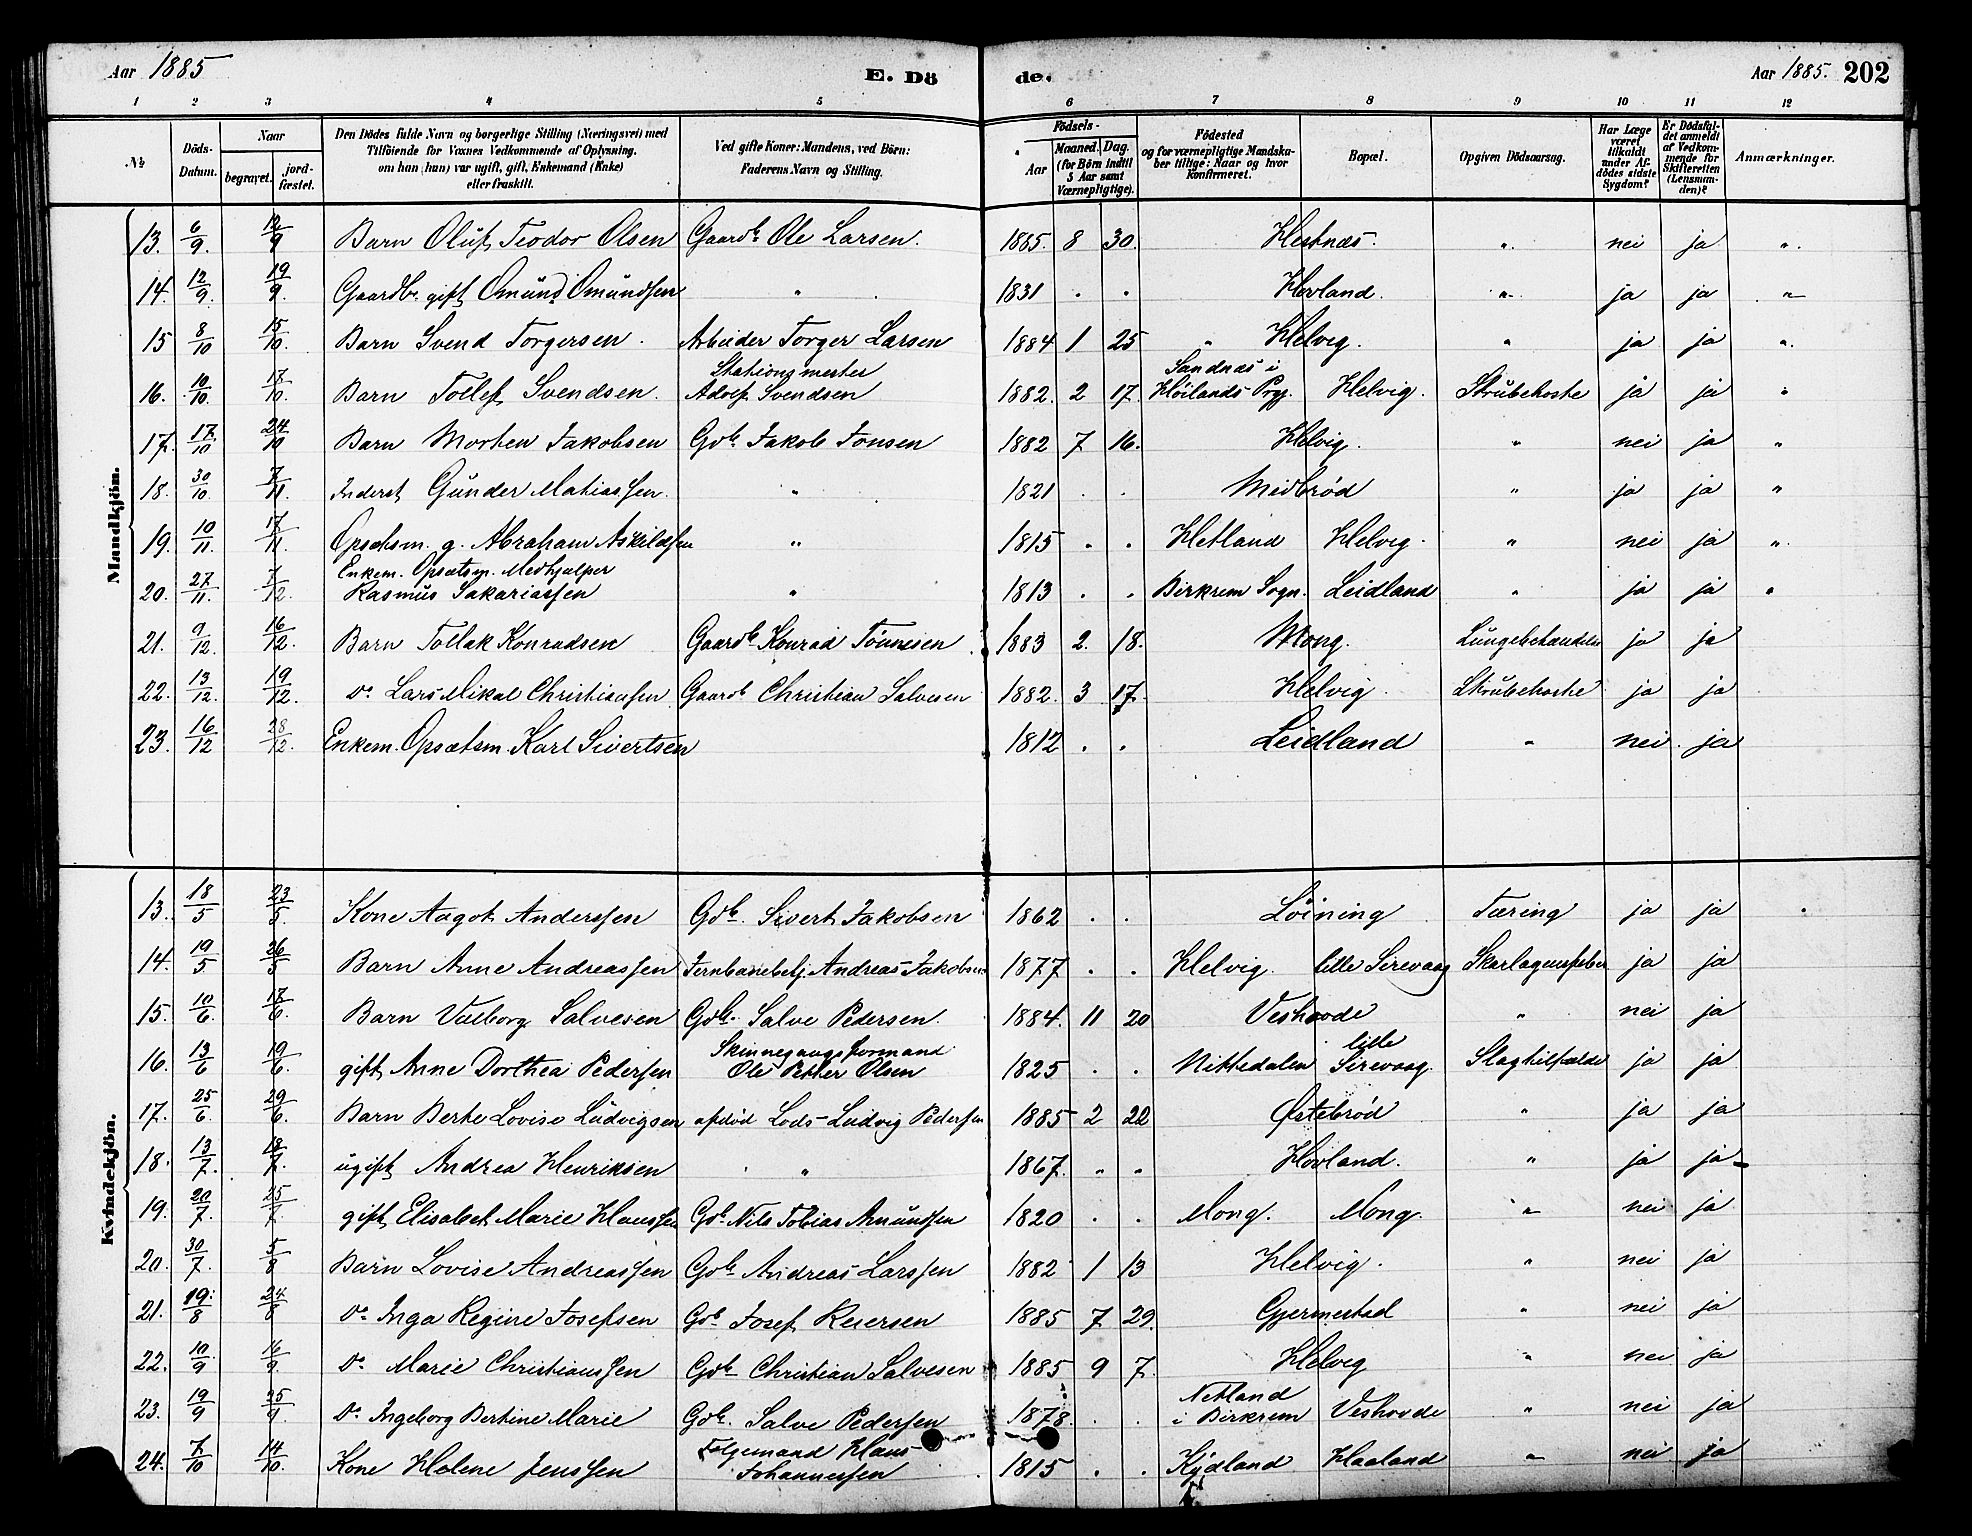 Aar 1885 E. Dö de. Aar 1885. 202
1 2 3 4 5 6 7 8 9 10 11 12
No Döds-Datum. Naar begravet. jord-fæstet. Den Dödes fulde Navn og borgerlige Stilling (Næringsvei) med Tilföiende for Voxnes Vedkommende af Oplysning, om han (hun) var ugift, gift, Enkemand (Enke) eller fraskilt. Ved gifte Koner: Mandens, ved Börn: Faderens Navn og Stilling. Födsels- Aar Maaned. Dag. (for Börn indtil 5 Aar samt Værnepligtige). Födested og for værnepligtige Mandskaber tillige: Naar og hvor Konfirmeret. Bopæl. Opgiven Dödsaarsag. Har Læge været tilkaldt under Afdödes sidste Sygdom? Er Dödsfaldet anmeldt af Vedkommende for Skifteretten (Lensmanden)? Anmærkninger.
Mandkjön.
13. 6/9. 12/9 Barn Oluf Teodor Olsen Gaardb. Ole Larsen. 1885. 8 30. Hestnæs. " nei ja "
14. 12/9. 19/9. Gaardbr. gift Omund Omundsen " 1831 . . Hovland. " ja ja "
15 8/10 15/10. Barn Svend Torgersen. Arbeider Torger Larsen 1884 1 25 " Helvig. " ja ja "
16. 10/10. 17/10. Barn Tollef Svendsen. Stationsmester Adolf Svendsen 1882. 2 17. Sandnæs i Höilands Prgj. Helvig. Strubehoste ja ja "
17. 17/10. 24/10 Barn Morten Jakobsen Gdb. Jakob Tonsen 1882 7 16. Helvig. " nei ja "
18. 30/10. 7/11. Inderst Gunder Matiassen. " 1821 . . Midbrød " ja ja "
19. 10/11. 17/11. Opsætsm. g. Abraham Askildsen " 1815 . . Hetland Helvig. " nei ja "
20. 27/11. 7/12. Enkem. Opsætsm. Medhjælper Rasmus Sakariassen " 1813 . . Birkrem Sogn. Leidland " ja ja "
21. 9/12. 16/12. Barn Tollak Konradsen Gaardb. Konrad Tønnesen 1883 2. 18. Mong. ja ja
22. 13/12. 19/12. Do Lars Mikal Christiansen Gaardb Christian Salvesen 1882. 3 17. Helvig. Strubehoste ja ja
23. 16/12 28/12. Enkem. Opsætsm. Karl Sivertsen 1812 . . Leidland " nei. ja
Kvindekjön.
13. 18/5 23/5. Kone Aagot Anderssen Gdb. Sivert Jakobsen 1862 . . Löining Tæring ja ja
14. 19/5 26/5 Barn Anne Andreassen Jernbanebetj. Andreas Jakobsen 1877 . . Helvig. lille Sirevaag Skarlagensfeber ja ja
15. 10/6 17/6. Barn Valborg Salvesen Gdb. Salve Pedersen. 1884. 11 20 Veshovde " nei ja
16. 13/6 19/6. gift Anne Dorthea Pedersen Skinnegangsformand Ole Petter Olsen 1825 . . Nittedalen lille Sirevaag. Slagtilfælde ja ja
17. 25/6 29/6. Barn Berte Lovise Ludvigsen afdød Lods Ludvig Pedersen 1885 2 22 Østebrød " ja ja
18. 13/7. 18/7. ugift Andrea Henriksen " 1867. " " Hovland. " ja ja
19. 20/7. 25/7. gift Elisabet Marie Hanssen Gdb. Nils Tobias Amundsen 1820 . . Mong. Mong. " nei ja
20. 30/7. 5/8 Barn Lovise Andreassen Gdb. Andreas Larssen 1882 1 13 Helvig. " nei ja
21. 19/8 24/8 Do Inga Regine Josefsen Gdb. Josef Reiersen 1885 7 29. Gjermestad " nei ja
22. 10/9 16/9. Do Marie Christianssen Gdb Christian Salvesen 1885 9 7. Helvig " nei ja
23. 19/9 25/9. Do Ingeborg Bertine Marie Gdb. Salve Pedersen 1878. . . Netland i Birkrem Veshovde " nei ja
24. 7/10 14/10. Kone Helene Jenssen Følgemand Hans Johannessen 1815 . . Kydland Haaland " nei ja